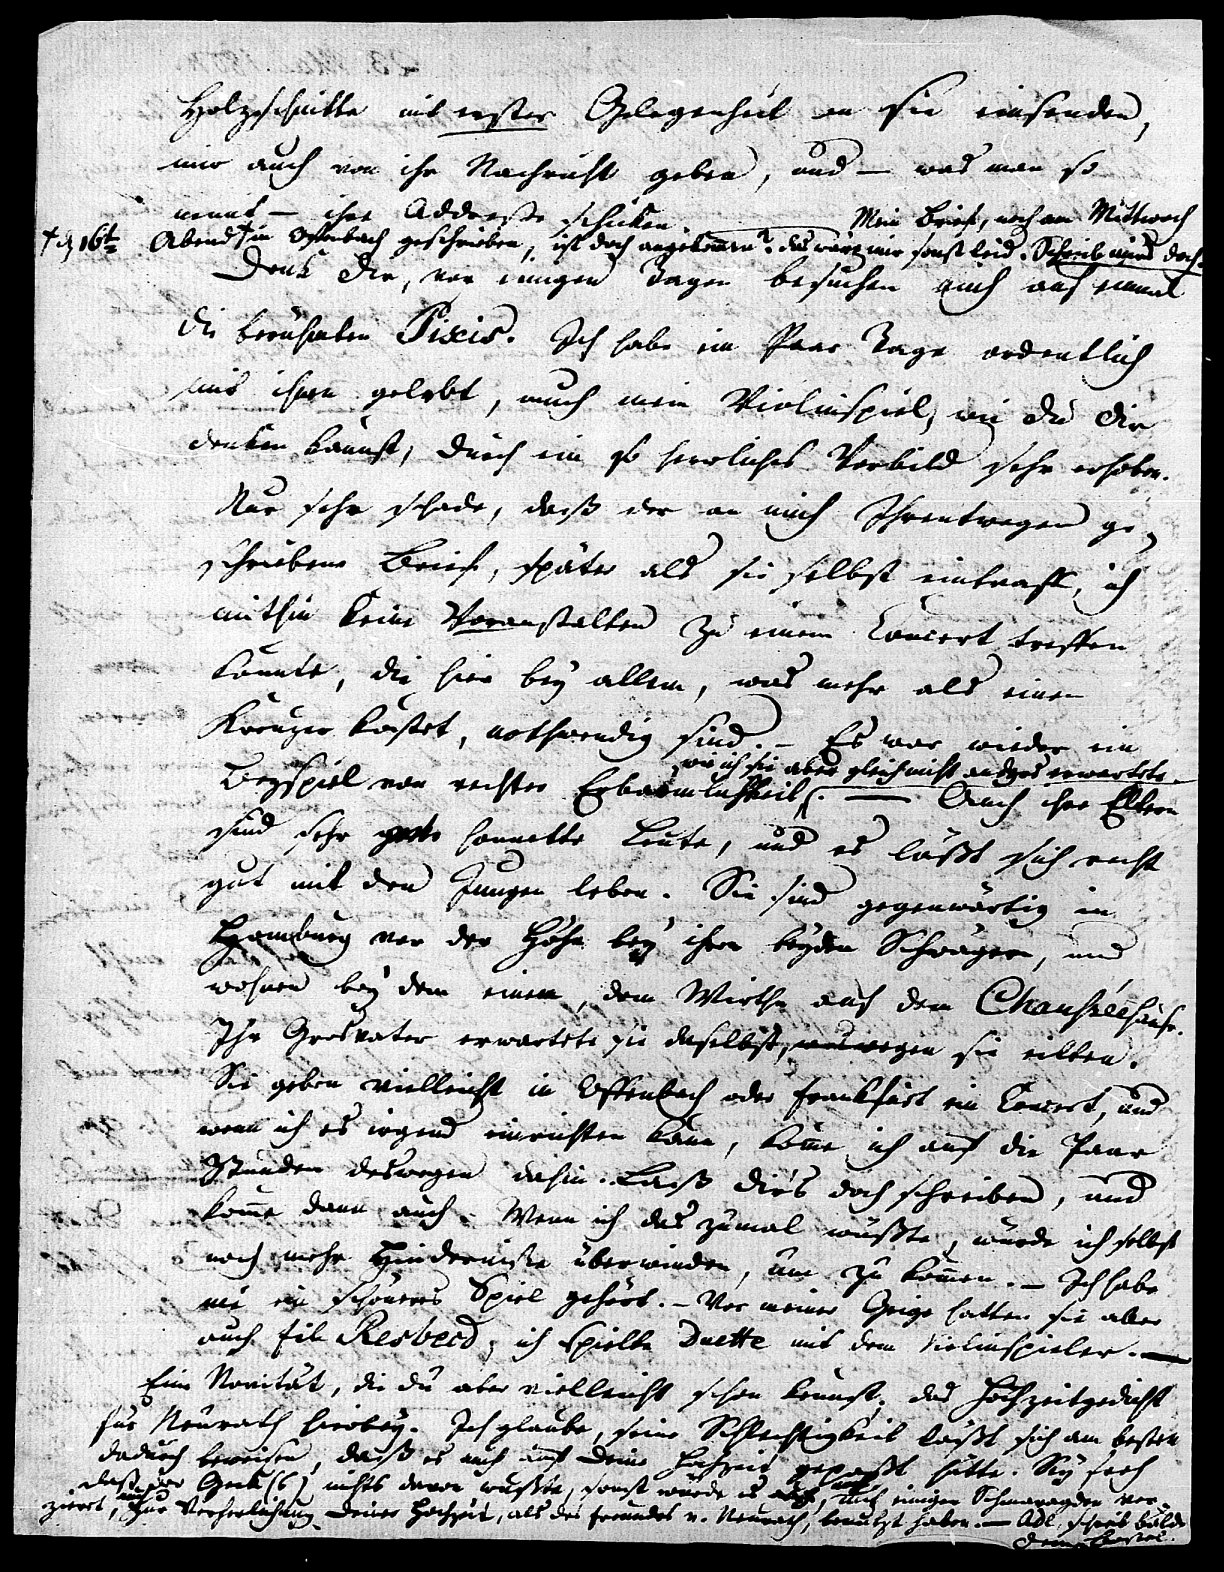 Holzschnitte mit erster Gelegenheit an sie einsenden,
mir auch von ihr Nachricht geben, und – was man so
nennt – ihre Addresse schicken. Mein Brief, noch am Mittwoch
† d. 16t Abend † in Offenbach geschrieben, ist doch angekommen? das wäre mir sonst leid. Schreib mirs doch.
Denk Dir, vor einigen Tagen besuchen mich auf einmal
die berühmten Pixis. Ich habe ein Paar Tage ordentlich
mit ihnen gelebt, auch mein Violinspiel, wie Du Dir
denken kannst, durch ein so herrliches Vorbild sehr erhoben.
Nur sehr schade, daß der an mich Ihrentwegen ge-
schriebene Brief, später als sie selbst eintraff, ich
mithin keine Voranstalten zu einem Concert treffen
konnte, die hier bey allem, was mehr als einen
Kreuzer kostet, nothwendig sind. – Es war wieder ein
wie ich sie aber gleich nicht anders erwartete
Beyspiel von rechter Erbärmlichkeit. — Auch ihre Eltern
sind sehr honnette Leute, und es läßt sich recht
gut mit den Jungen leben. Sie sind gegenwärtig in
Homburg vor der Höhe bey ihren beyden Schwägern, und
wohnen bey dem einen, dem Wirthe auf dem Chausséehause.
Ihr Grosvater erwartete sie daselbst, weswegen sie eilten.
Sie geben vielleicht in Offenbach oder Frankfurt ein Concert, und
wenn ich es irgend einrichten kann, komme ich auf die Paar
Stunden deswegen dahin. Laß dirs doch schreiben, und
komme dann auch. Wenn ich das zumal wüßte, würde ich selbst
noch mehr Hinderniße überwinden, um zu kommen. – Ich habe
nie ein schöneres Spiel gehört. – Vor meiner Geige hatten sie aber
auch Respect, ich spielte Duette mit dem Violinspieler. —
Eine Novität, die du aber vielleicht schon kennst, das Hochzeitgedicht
für Neurath hierbey. Ich glaube, seine Schlechtigkeit läßt sich am besten
dadurch beweisen, daß es auch auf Deine Hochzeit gepaßt hätte. Sey froh
daß der Geck (6) nichts davon wußte, sonst würde er es, mit einigen Schmaragden ver-
ziert, zur Verherlichung Deiner Hochzeit, als des Freundes v. Neurath, benutzt haben. — Ade, schreib balde